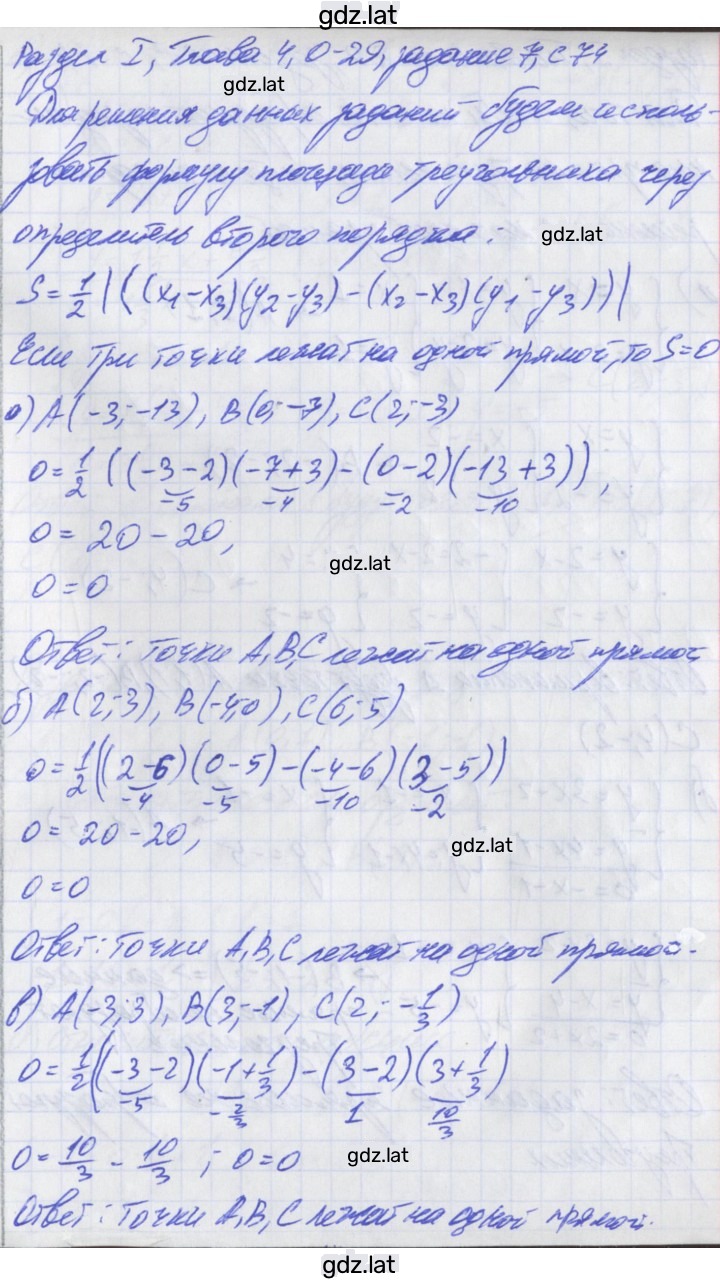 gdz.lat
Раздел I, Глава 4, О-29, задание 7, с 74
gdz.lat
Для решения данных заданий будем исполь-
зовать формулу площади треугольника через
определитель второго порядка:
gdz.lat
S = 1/2 |((x₁-x₃)(y₂-y₃) - (x₂-x₃)(y₁-y₃))|
Если три точки лежат на одной прямой, то S=0
а) A(-3;-13), B(0;-7), C(2;-3)
0 = 1/2 ((-3-2)(-7+3) - (0-2)(-13+3)),
-5 -4 -2 -10
0 = 20 - 20,
gdz.lat
0 = 0
Ответ: точки A, B, C лежат на одной прямой
б) A(2;3), B(-4;0), C(6;5)
0 = 1/2 ((2-6)(0-5) - (-4-6)(3-5))
-4 -5 -10 -2
0 = 20 - 20,
gdz.lat
0 = 0
Ответ: точки A, B, C лежат на одной прямой.
в) A(-3;3), B(3;-1), C(2; -1/3)
0 = 1/2 ((-3-2)(-1+1/3) - (3-2)(3+1/3)
-5 -2/3 1 10/3
0 = 10/3 - 10/3 ; 0=0
gdz.lat
Ответ: точки A, B, C лежат на одной прямой.
gdz.lat